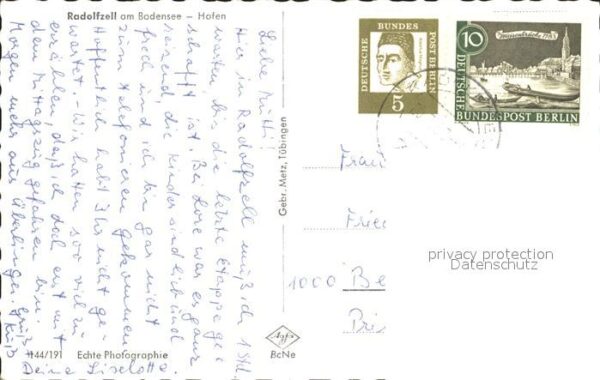 Radolfzell am Bodensee — Hafen
Liebe Mutti!
Hier in Radolfzell muß ich 1 Std.
warten, bis die letzte Etappe ge-
schafft ist. Bei Lore war es ganz
reizend, die Kinder sind lieb und
frech und ich bin gar nicht
zum telefonieren gekommen.
Hoffentlich habt Ihr nicht ge-
wartet. Wir hatten soo viel zu
erzählen, daß ich doch erst mit
dem Mittagszug gefahren bin.
Morgen mehr aus Überlingen. Gruß
Kuß
Deine Liselotte.
Gebr. Metz, Tübingen
DEUTSCHE BUNDES POST BERLIN
5
10
DEUTSCHE
BUNDESPOST BERLIN
Frau
Frie
1000 Be
privacy protection
Datenschutz
#44/191 Echte Photographie
Agfa
BcNe